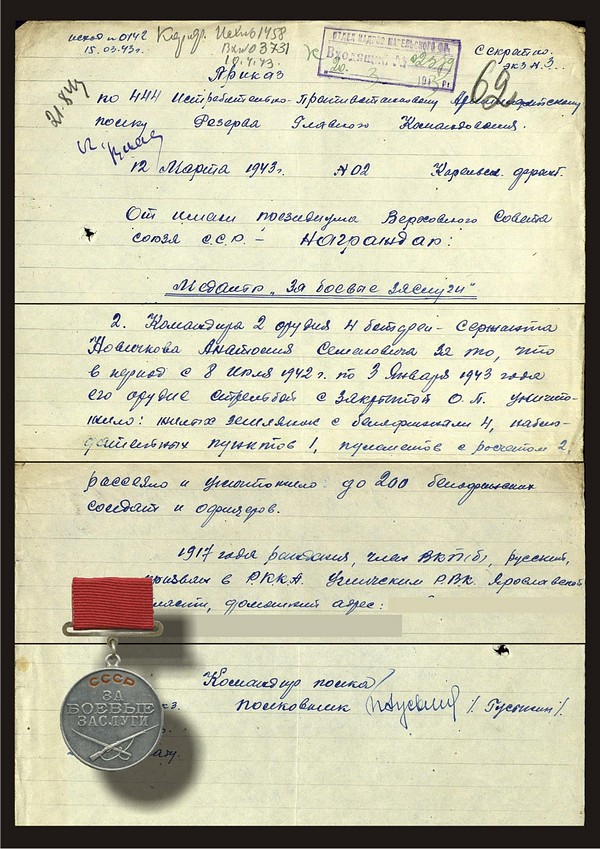 исход н 0142
15.03.43 г.
Карэр. Исх. № 1458
Вх. № 03731
19.4.43
К
ОТДЕЛ КАДРОВ КАРЕЛЬСКОГО ФР.
Входящий №
20. 3 1943 г.
Секретно.
экз № 3
62
21.844
Приказ
по 444 Истребительно-Противотанковому Артиллерийскому
полку Резерва Главного Командования.
12 Марта 1943 г. № 02 Карельск. фронт.
От имени президиума Верховного Совета
союза С.С.Р. – Награждаю:
Медалью „За боевые заслуги"
2. Командира 2 орудия 4 батареи – Сержанта
Новичкова Анатолия Семеновича за то, что
в период с 8 Июля 1942 г. по 3 Января 1943 года
его орудие стрельбой с закрытой О.П. уничто-
жило: жилых землянок с белофиннами 4, наблю-
дательных пунктов 1, пулеметов с расчетом 2,
рассеяло и уничтожило до 200 белофинских
солдат и офицеров.
1917 года рождения, член ВКП(б), русский,
призван в РККА Угличским РВК Ярославской
области, домашний адрес:
Командир полка
полковник /Гуськин/.
экз.
СССР
ЗА
БОЕВЫЕ
ЗАСЛУГИ